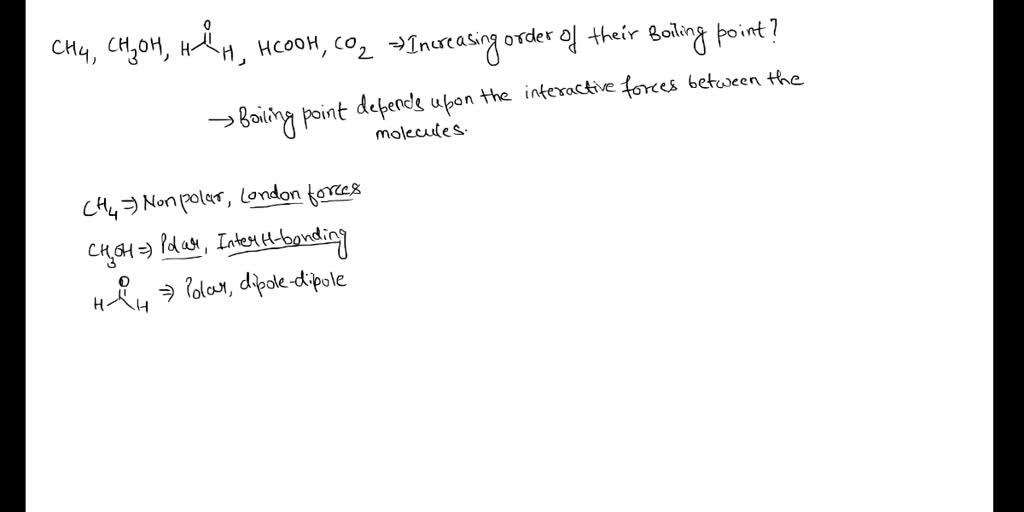 CH4, CH3OH, H O H, HCOOH, CO2 → Increasing order of their Boiling point?
→ Boiling point depends upon the interactive forces between the
molecules.
CH4 ⇒ Nonpolar, London forces
CH3OH ⇒ Polar, Inter H-bonding
H O H ⇒ Polar, dipole-dipole